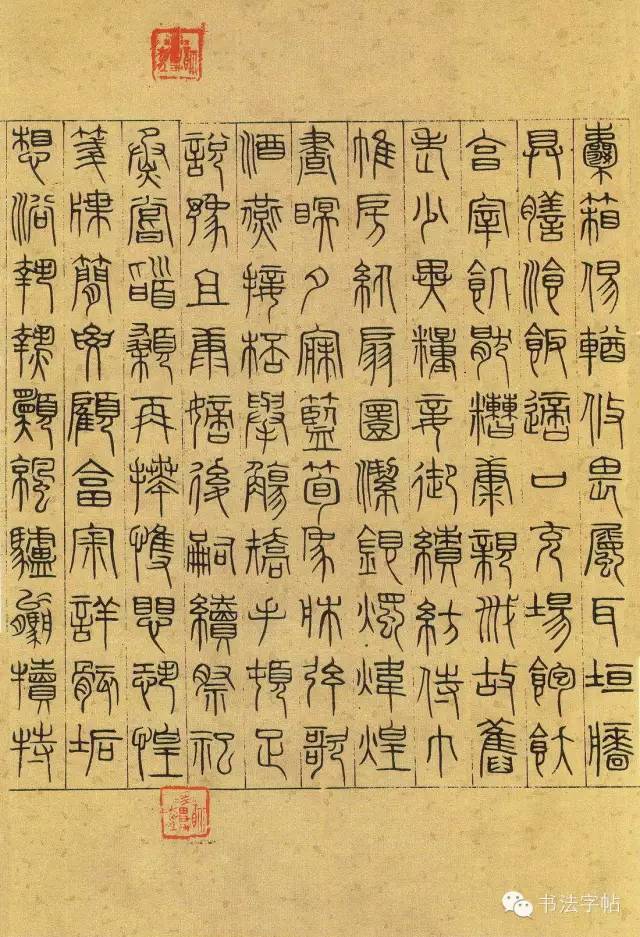 囊箱易輶攸畏屬耳垣牆
具膳飡飯適口充腸飽飫
亯宰飢厭糟糠親戚故舊
老少異糧妾御績紡侍巾
帷房紈扇圓潔銀燭煒煌
晝瞑夕寐籃筍象牀弦歌
酒燕接桮舉觴矯手頓足
說豫且康嫡後嗣續祭祀
烝嘗稽顙再拜愯愳恐惶
箋牒簡要顧答審詳骸垢
想浴執熱願涼驢驘犢特
书法字帖